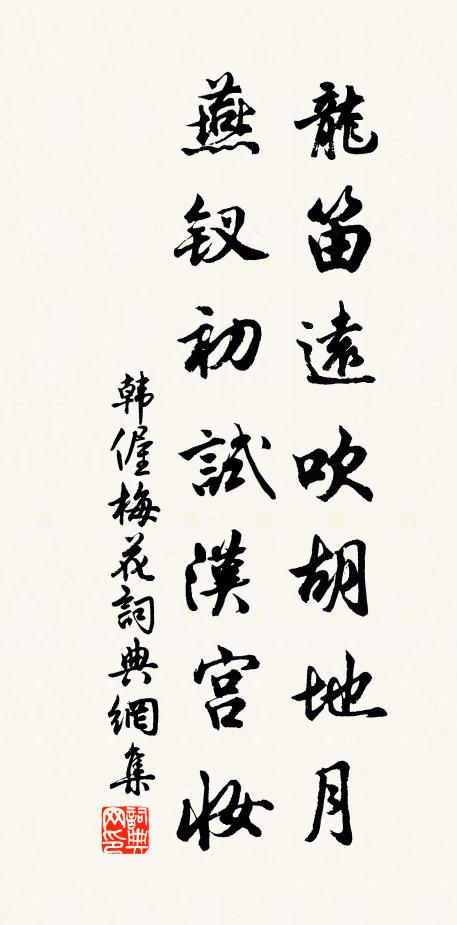 龍笛遠吹胡地月
燕钗初試漢宫妝
韩偓梅花詞典網集
詞典网印